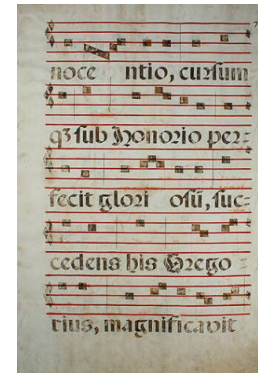 noce ntio, cursum
qꝫ sub Honorio per=
fecit glori osū, suc=
cedens his Grego=
rius, magnificavit